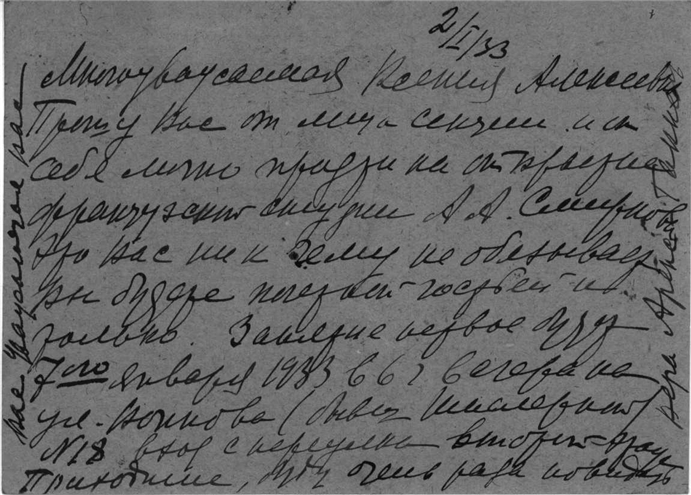 2/I/33
Многоуважаемая Ксения Алексеевна
Прошу Вас от лица секции и от
себя лично придти на открытие
французской студии А А. Смирнов
это Вас ни к чему не обязывает
вы будете почетной гостьей и
только. Занятие первое будет
7ого января 1933 в 6 ч вечера на
ул. Воинова (бывш Шпалерной)
№18 вход с переулка второй этаж
Приходите, буду очень рада повидать
вас Уважающая вас
Вера Аренс